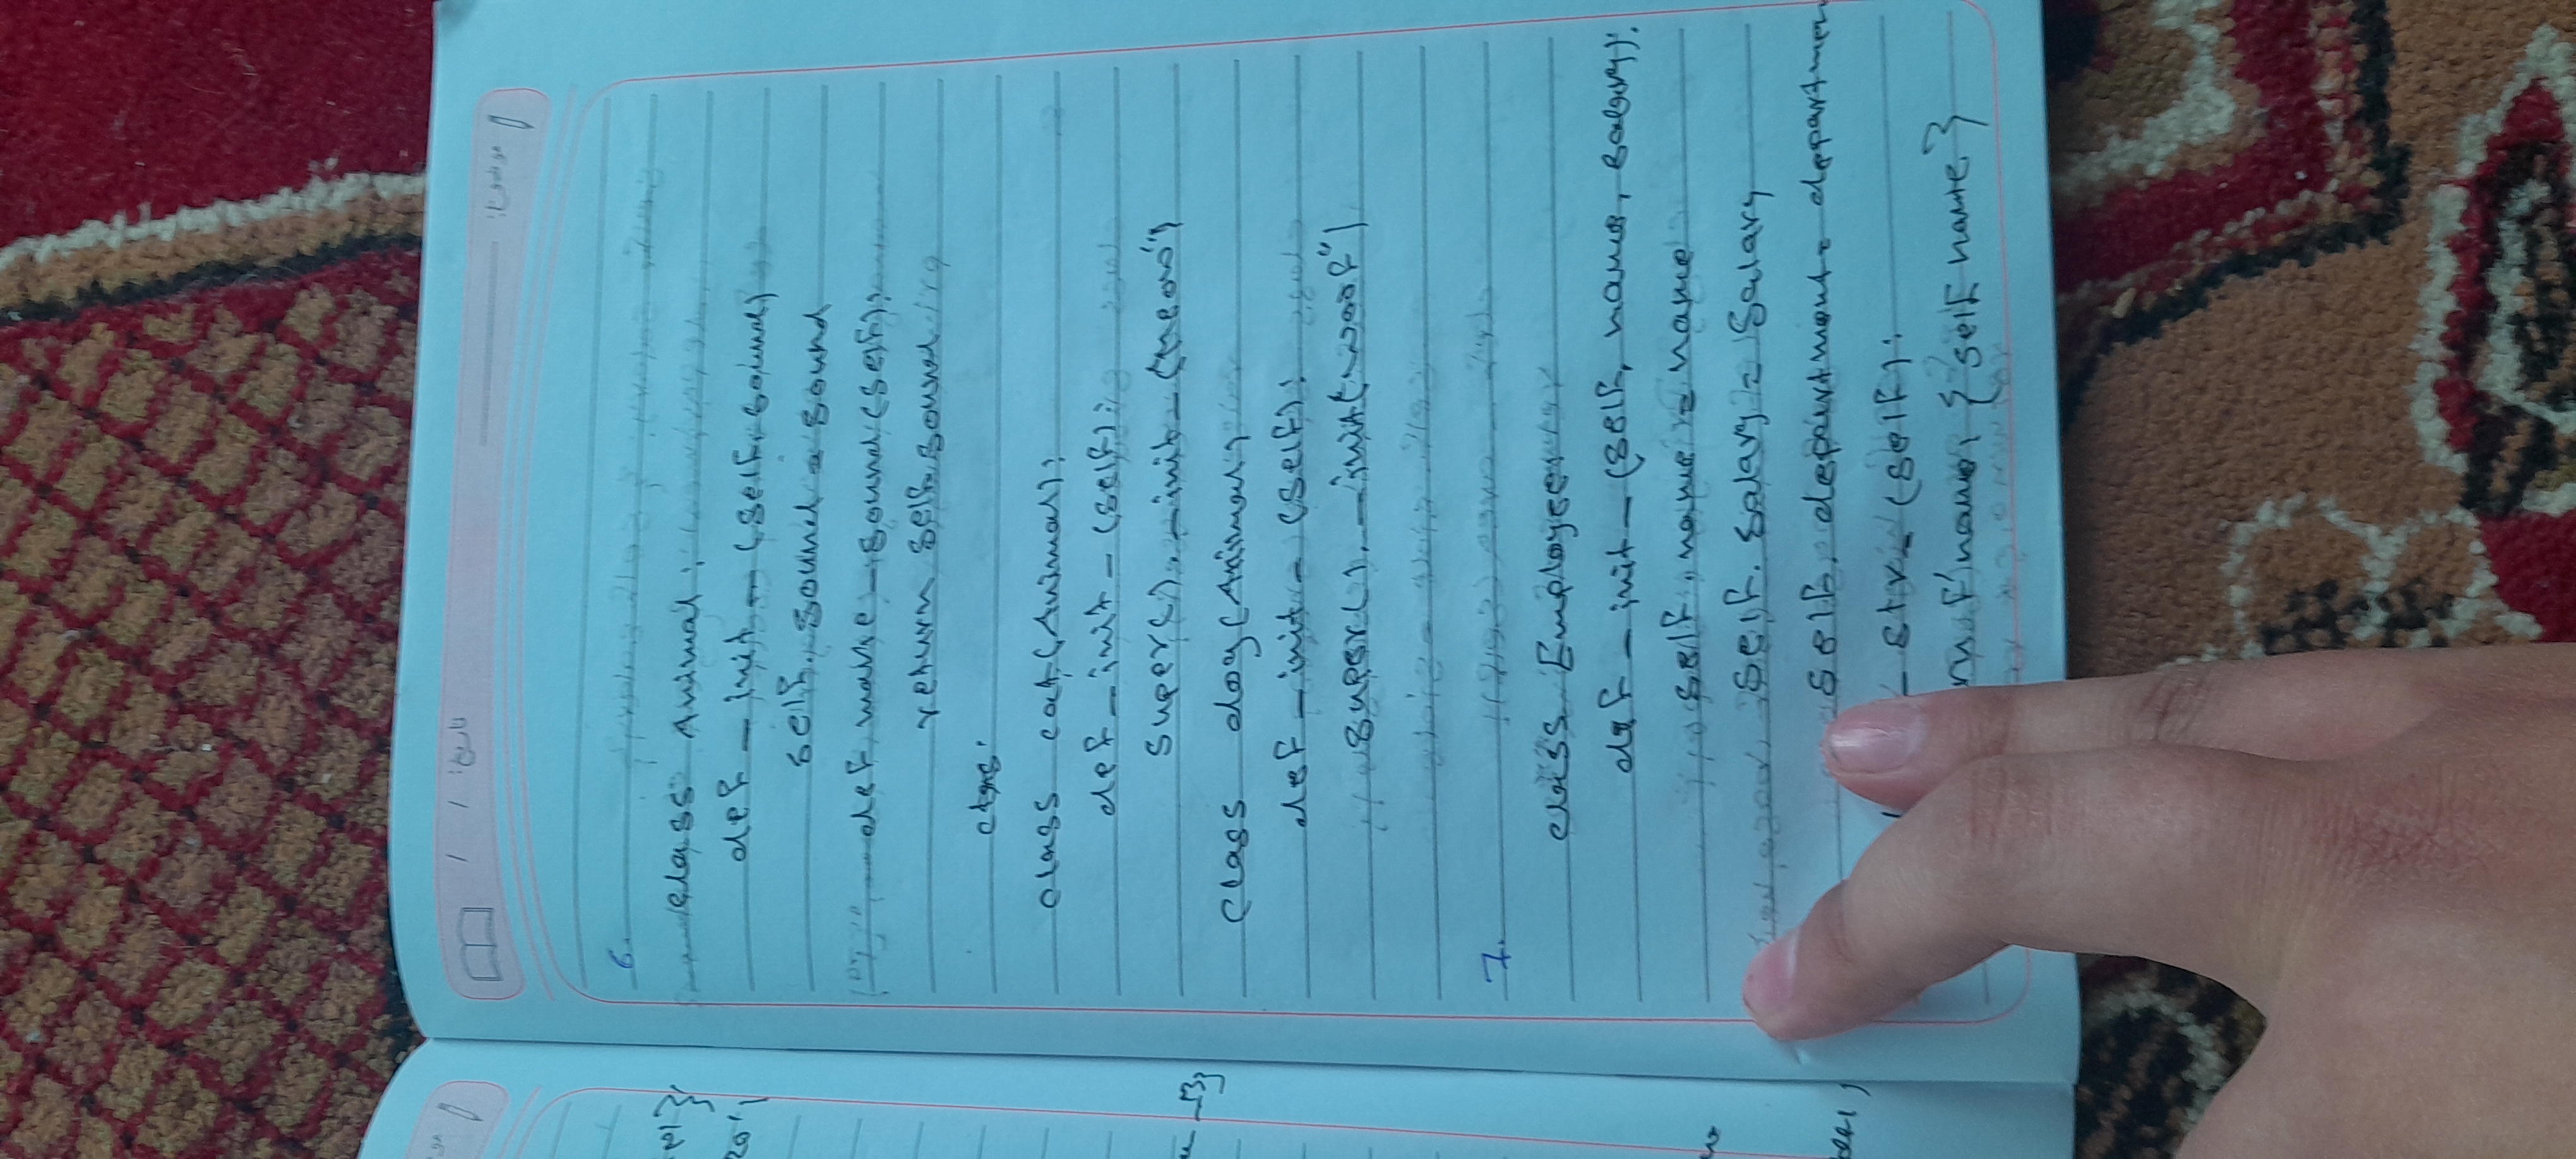 موضوع:
تاریخ: / /
6.
class Animal:
def _init_ (self, sound)
self. sound = sound
def make_sound (self):
return self.sound
class cat(Animal):
def _init_ (self):
super(). _init_ ("meow")
class dog(Animal)
def _init_ (self):
super(). _init("woof")
7.
class Employee:
def _init_ (self, name, salary):
self. name = name
self. salary = salary
self. department = departmen
_ str_ (self):
rn f'name: {self name}